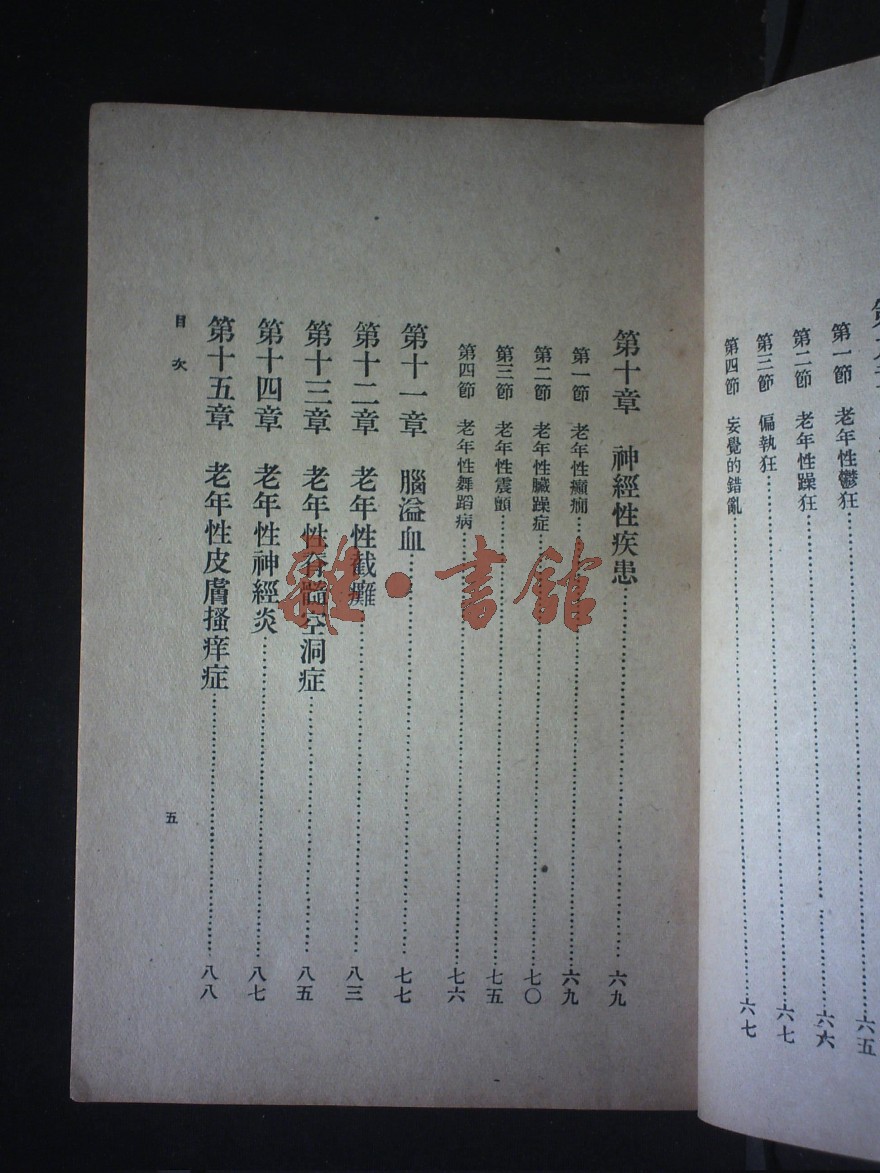 第一節 老年性鬱狂 六五
第二節 老年性躁狂 六六
第三節 偏執狂 六七
第四節 妄覺的錯亂 六七
第十章 神經性疾患 六九
第一節 老年性癲癇 六九
第二節 老年性臟躁症 七〇
第三節 老年性震顫 七五
第四節 老年性舞蹈病 七六
第十一章 腦溢血 七七
第十二章 老年性截癱 八三
第十三章 老年性脊髓空洞症 八五
第十四章 老年性神經炎 八七
第十五章 老年性皮膚搔痒症 八八
目次 五
雜·書館